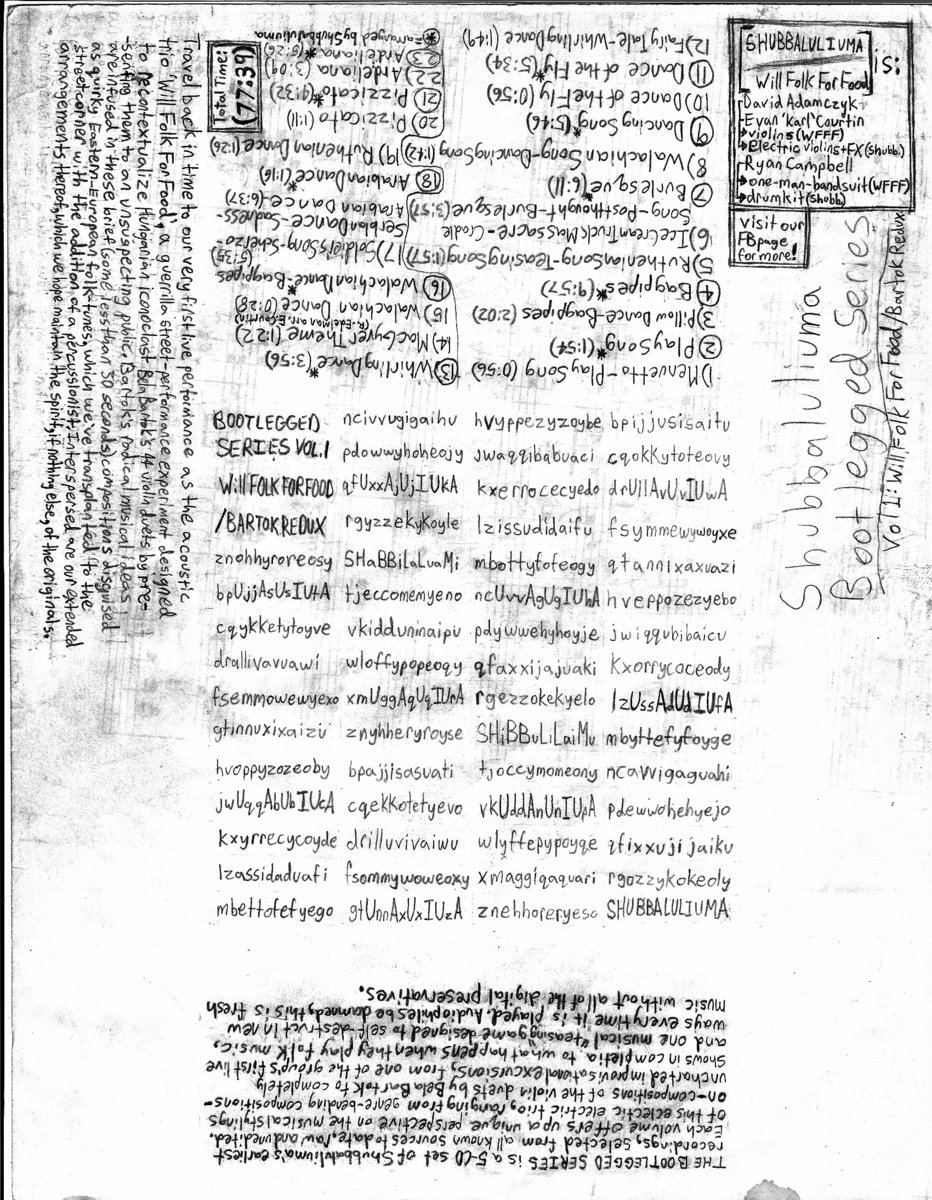 SHUBBALULIUMA
Will Folk For Food
is:
David Adamczyk
Evan 'Karl' Courtin
violins (WFFF)
electric violins+FX (shubb.)
Ryan Campbell
one-man-band suit (WFFF)
drumkit (shubb)
visit our
FB page
for more!
Shubbaluliuma
Bootlegged Series
Vol 1: Will Folk For Food/Bartok Redux
1) Menuetto-Play Song (0:56)
2) Play Song* (1:54)
3) Pillow Dance-Bagpipes (2:02)
4) Bagpipes* (9:57)
5) Ruthenian Song-Teasing Song (1:57)
6) Ice Cream Truck Massacre-Cradle
Song-Postthought-Burlesque (3:57)
7) Burlesque* (6:11)
8) Walachian Song-Dancing Song (1:42)
9) Dancing Song* (5:46)
10) Dance of the Fly (0:56)
11) Dance of the Fly* (5:34)
12) Fairy Tale-Whirling Dance (1:49)
13) Whirling Dance* (3:56)
14) MacGyver Theme (1:22)
(R. Edelman, arr. E. Courtin)
15) Walachian Dance (0:28)
16) Walachian Dance-Bagpipes* (5:35)
17) Soldiers Song-Scherzo-
Serbian Dance-Sadness-
Arabian Dance (6:37)
18) Arabian Dance* (1:16)
19) Ruthenian Dance (1:26)
20) Pizzicato (1:11)
21) Pizzicato* (4:32)
22) Ardeliana (3:09)
23) Ardeliana* (5:26)
(*)=arranged by Shubbaluliuma
Total Time:
(77:39)
Travel back in time to our very first live performance as the acoustic
trio 'Will Folk For Food', a guerrilla street-performance experiment designed
to recontextualize Hungarian iconoclast Bela Bartok's 44 violin duets by pre-
-senting them to an unsuspecting public. Bartok's radical musical ideas
are infused in these brief (some less than 30 seconds) compositions disguised
as quirky Eastern-European folk-tunes, which we've transplanted to the
street corner with the addition of a percussionist. Interspersed are our extended
arrangements thereof, which we hope maintain the spirit, if nothing else, of the originals.
BOOTLEGGED ncivvugigaihu hvyppezyzoybe bpijjusisaitu
SERIES VOL.1 pdowwyhoheojy jwaqqibabuaci cqokkytoteovy
Will FOLK FOR FOOD qfUxxAjUjIUkA kxerrocecyedo drUllAvUvIUwA
/BARTOK REDUX rgyzzekykoyle lzissudidaifu fsymmewywoyxe
znohhyroreosy SHaBBiLaLuaMi mbottyfofeogy gtannixaxuazi
bpUjjAsUsIUtA tjeccomemyeno ncUvvAgUgIUhA hveppozezyebo
cqykketytoyve vkiddununaipu pdywwehyhoyje jwiqqubibaicu
drallivavuawi wloffypopeoqy qfaxxijajuaki kxorrycoceody
fsemmowewyexo xmUggAqUqIUrA rgezzokekyelo lzUssAdUdIUfA
gtinnuxixaizu znyhheryroyse SHiBBuLiLaiMu mbyttefyfoyge
hvoppyzozeoby bpajjisasuati tjoccymomeony ncavvigaguahi
jwUqqAbUbIUcA cqekkotetyevo vkUddAnUnIUpA pdewwohehyejo
kxyrrecycoyde drilluvivaiwu wlyffepypoyqe qfixxujijaiku
lzassidaduafi fsommywoweoxy xmaggiqaquari rgozzykokeoly
mbettofefyego gtUnnAxUxIUzA znehhoreryeso SHUBBALULIUMA
THE BOOTLEGGED SERIES is a 5-CD set of Shubbaluliuma's earliest
recordings, selected from all known sources to date, raw and unedited.
Each volume offers up a unique perspective on the musical stylings
of this eclectic electric trio, ranging from genre-bending compositions-
on-compositions of the violin duets by Bela Bartok to completely
uncharted improvisational excursions; from one of the group's first live
shows in completia, to what happens when they play folk music,
and one musical "teasing" game designed to self-destruct in new
ways every time it is played. Audiophiles be damned, this is fresh
music without all of the digital preservatives.